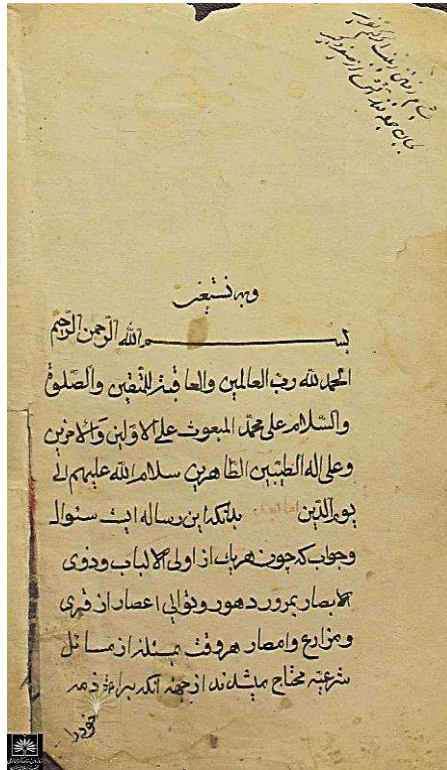 وبه نستعين
بسم الله الرحمن الرحيم
الحمد لله رب العالمين والعاقبة للمتقين والصلوة
والسلام على محمد المبعوث على الاولين والاخرين
وعلى اله الطيبين الطاهرين سلام الله عليهم الى
يوم الدين اما بعد بدانکه این رساله ایست سئوال
وجواب که چون هریک از اولی الالباب وذوی
الابصار بمرور دهور وتوالی اعصار از قری
ومزارع وامصار هر وقت بمسئله از مسائل
شرعیه محتاج میشدند از جهة آنکه براءة ذمه
خودرا